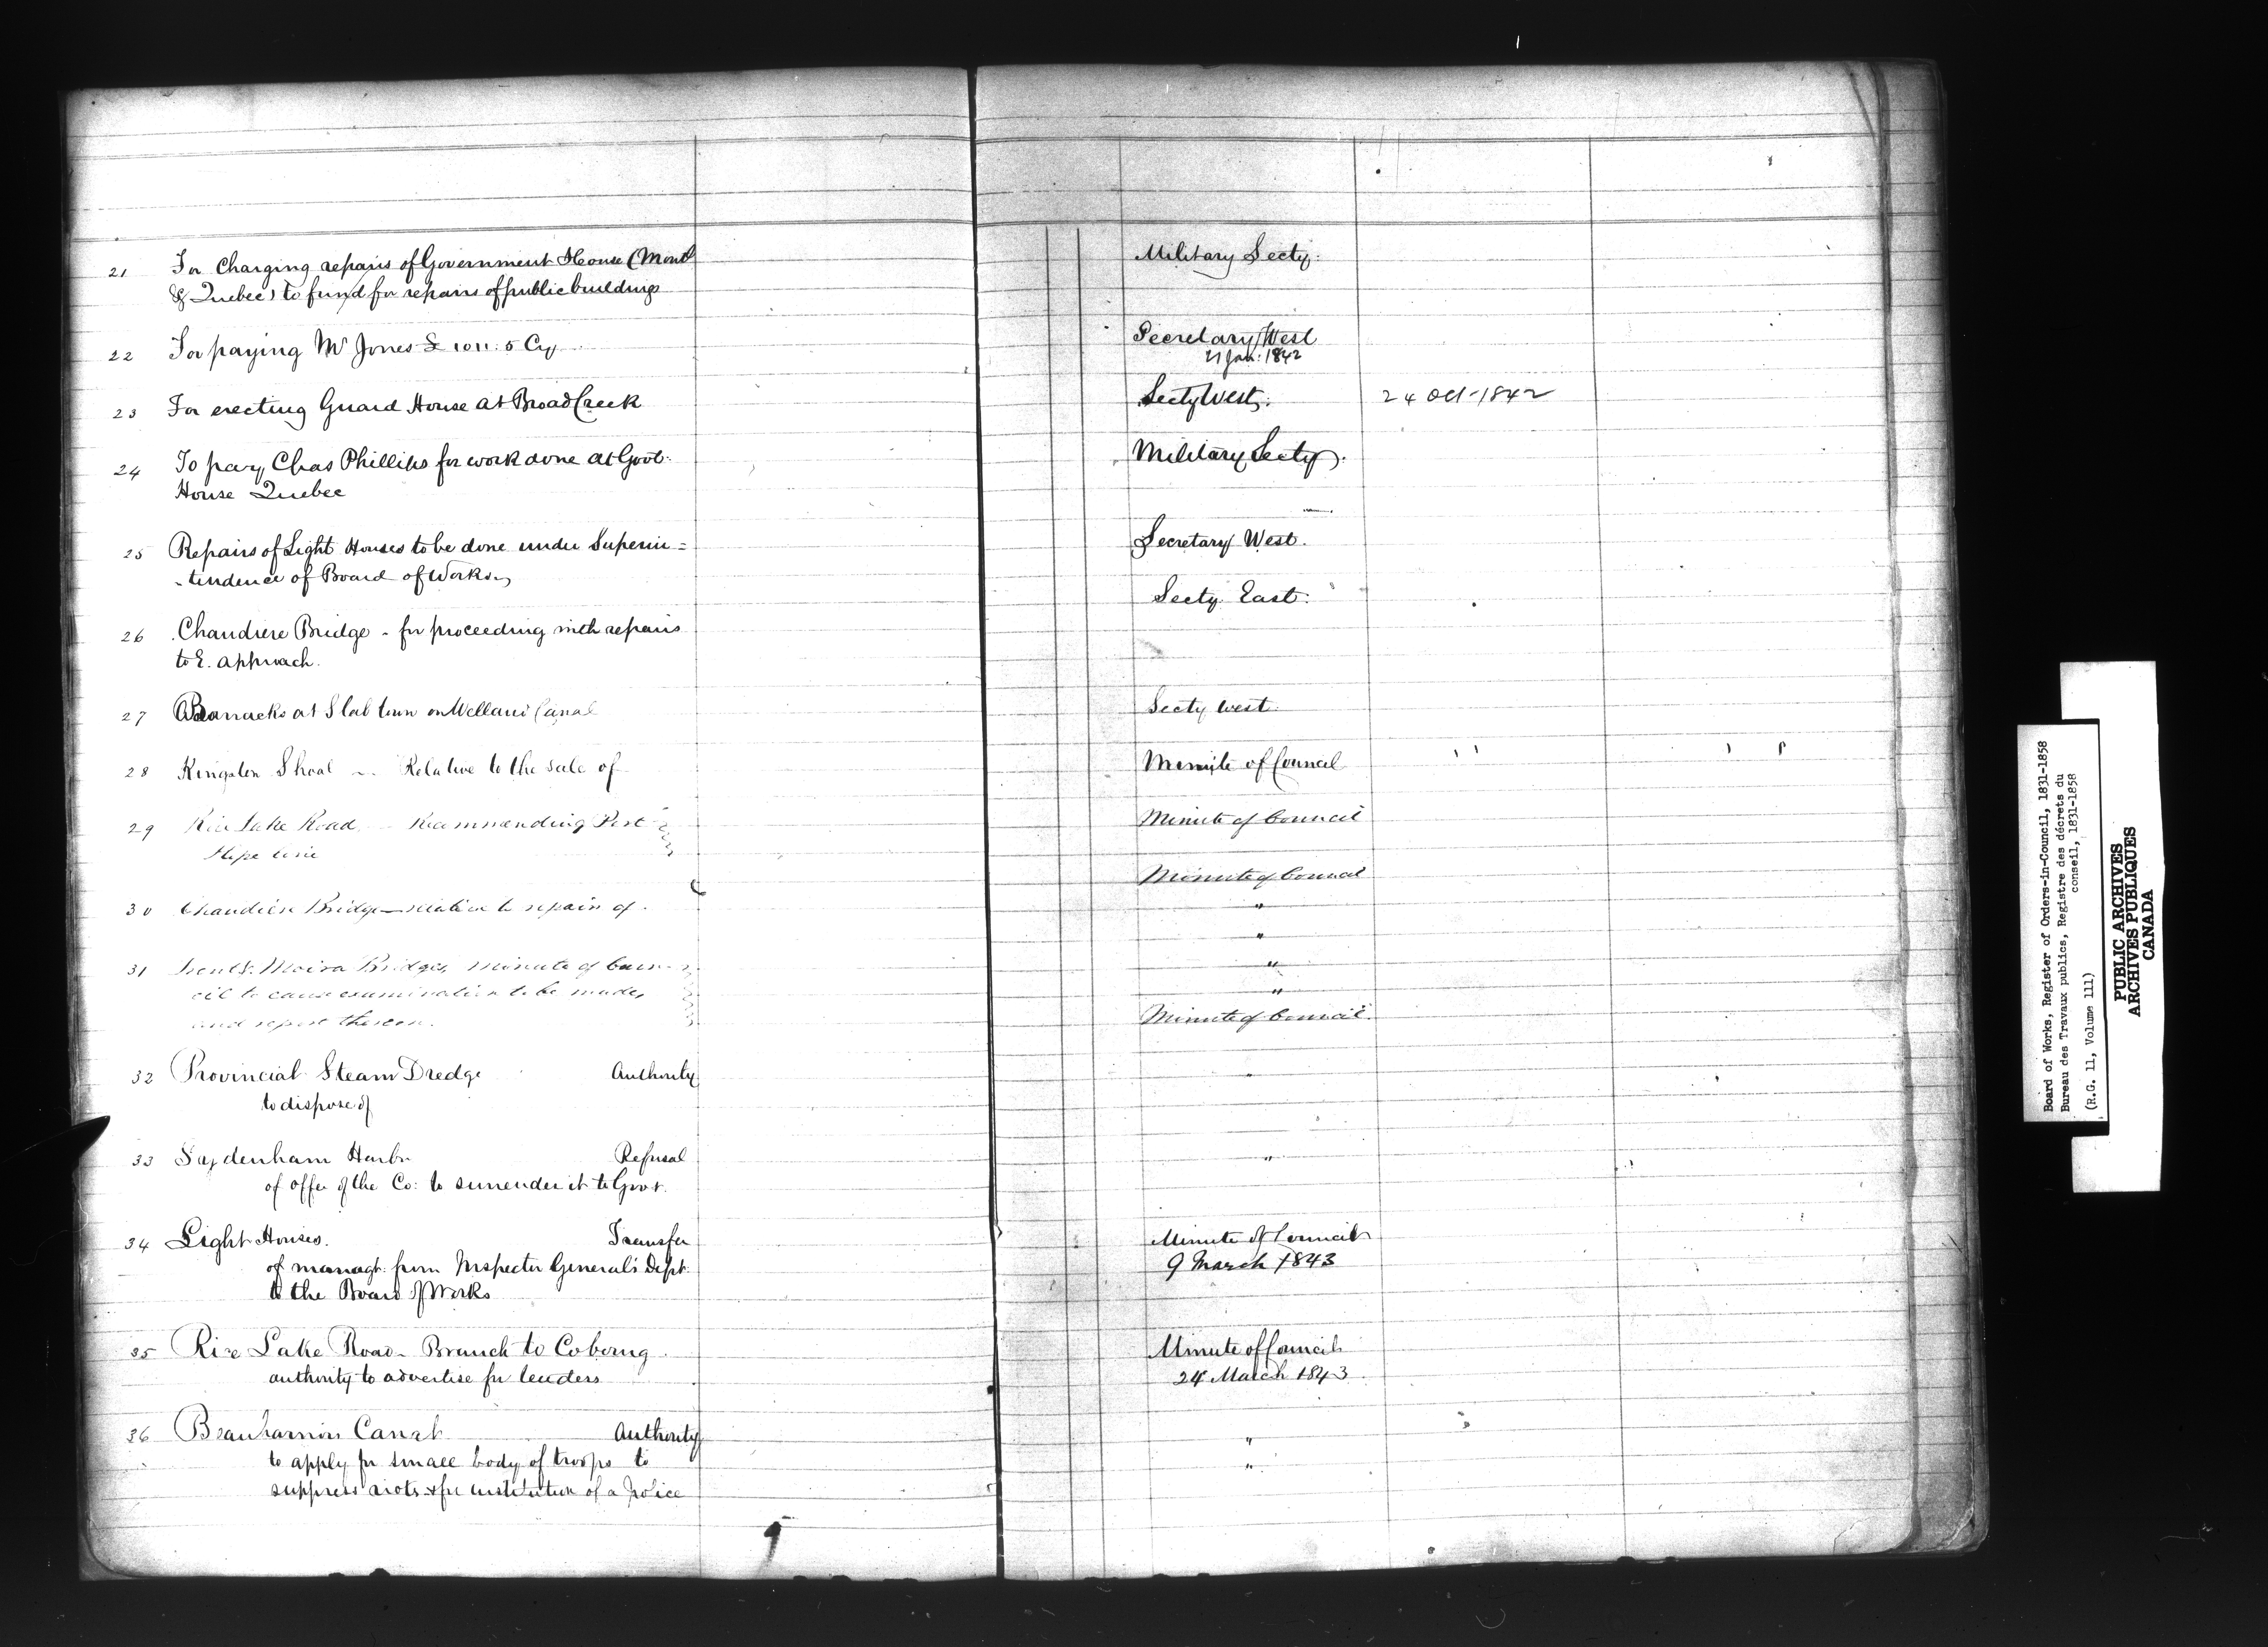 21 For Charging repairs of Government House (Mont
& Quebec) to fund for repairs of public buildings
Military Secty:
22 For paying Mr Jones £ 1011: 5 Cy
Secretary West
21 Jan: 1842
23 For erecting Guard House at Broad Creek
Secty West: 24 Oct 1842
24 To pay Chas Phillips for work done at Govt:
House Quebec
Military Secty.
25 Repairs of Light Houses to be done under Superin=
-tendence of Board of Works
Secretary West.
26 Chaudiere Bridge - for proceeding with repairs
to E. approach.
Secty East:
27 Barracks at Slab town on Welland Canal
Secty West:
28 Kingston Shoal - Relative to the sale of
Minute of Council " "
29 Rice Lake Road - Recommending Port
Hope line
Minute of Council
30 Chaudiere Bridge - relative to repair of.
Minute of Council
"
"
31 Moira Bridges, minute of Coun-
cil to cause examination to be made,
and report thereon.
"
"
Minute of Council.
32 Provincial Steam Dredge Authority
to dispose of
"
33 Sydenham Harbr Refusal
of offer of the Co: to surrender it to Govt.
"
34 Light Houses. Transfer
of managt: from Inspector General's Dept:
to the Board of Works
Minute of Council
9 March 1843
35 Rice Lake Road - Branch to Cobourg
authority to advertise for tenders
Minute of Council
24 March 1843
36 Beauharnois Canal Authority
to apply for small body of troops to
suppress riots & for institution of a police
"
"
Board of Works, Register of Orders-in-Council, 1831-1858
Bureau des Travaux publics, Registre des décrets du
conseil, 1831-1858
(R.G. 11, Volume 111)
PUBLIC ARCHIVES
ARCHIVES PUBLIQUES
CANADA